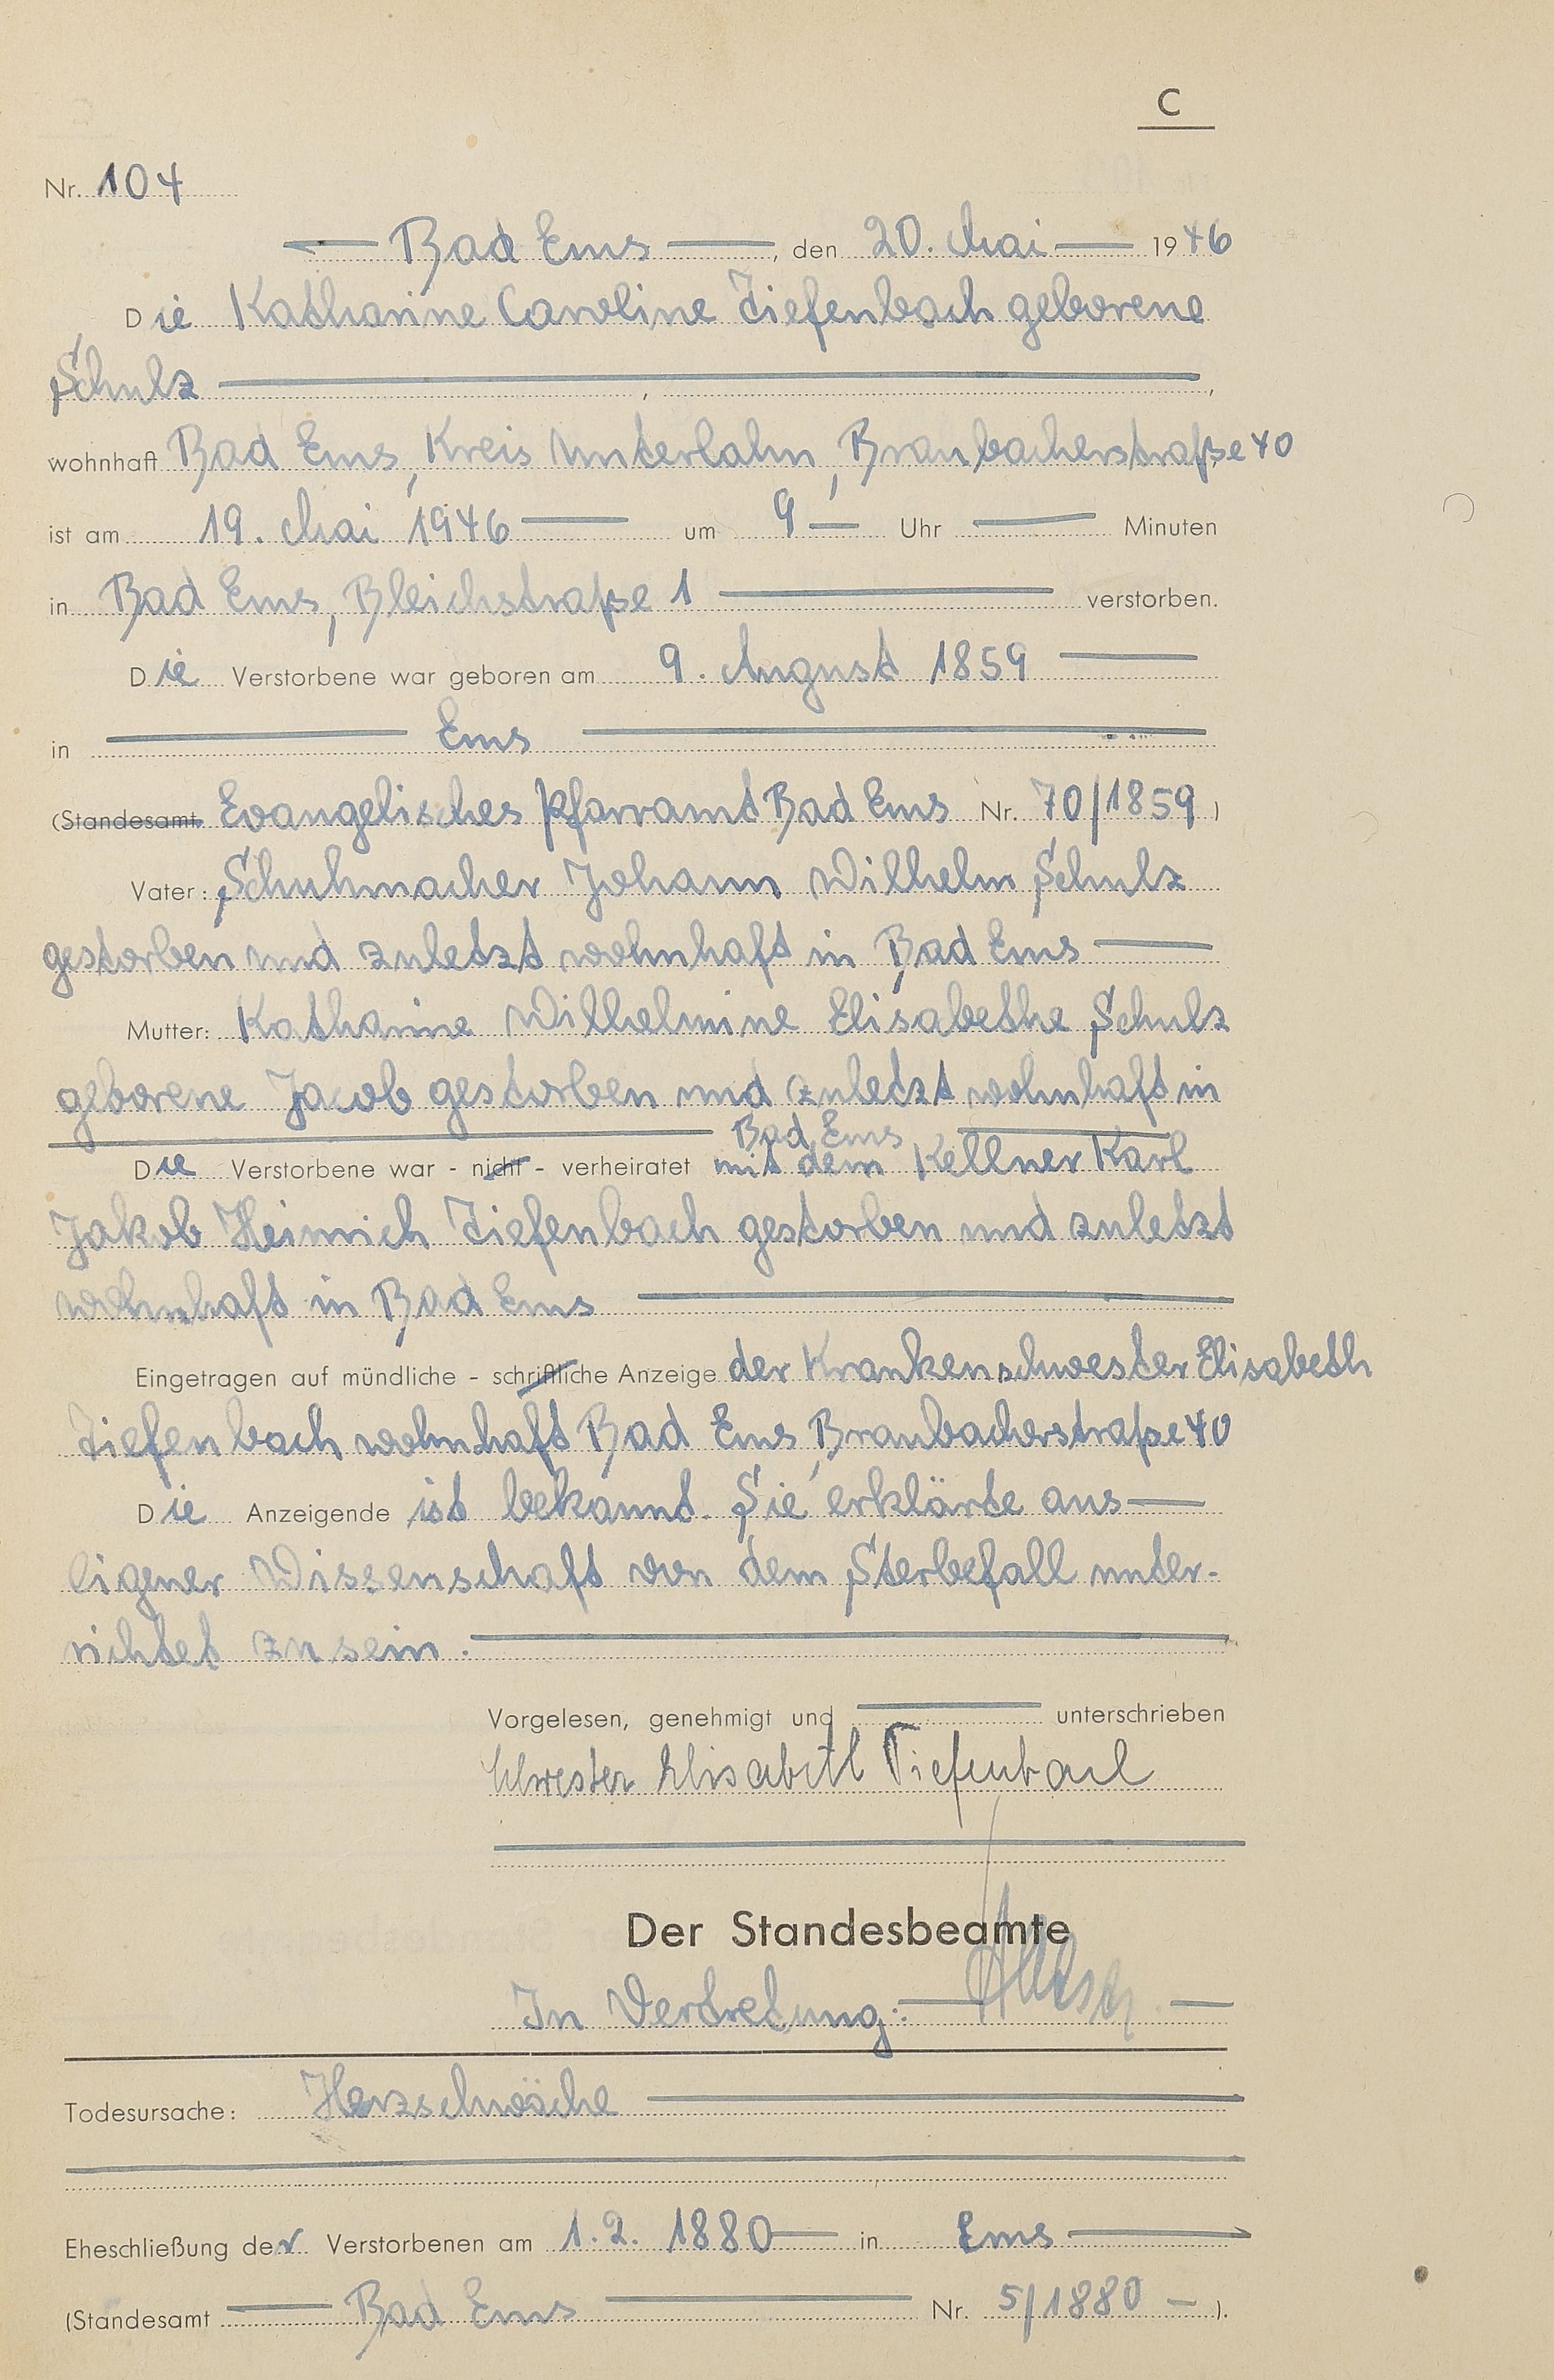 C
Nr. 104
Bad Ems, den 20. Mai 1946
Die Katharine Caroline Tiefenbach geborene
Schulz
wohnhaft Bad Ems, Kreis Unterlahn, Braubacherstraße 40
ist am 19. Mai 1946 um 9 Uhr Minuten
in Bad Ems, Bleichstraße 1 verstorben.
Die Verstorbene war geboren am 9. August 1859
in Ems
(Standesamt Evangelisches Pfarramt Bad Ems Nr. 70/1859)
Vater: Schuhmacher Johann Wilhelm Schulz
gestorben und zuletzt wohnhaft in Bad Ems
Mutter: Katharine Wilhelmine Elisabethe Schulz
geborene Jacob gestorben und zuletzt wohnhaft in
Bad Ems
Die Verstorbene war - nicht - verheiratet mit dem Kellner Karl
Jakob Heinrich Tiefenbach gestorben und zuletzt
wohnhaft in Bad Ems
Eingetragen auf mündliche - schriftliche Anzeige der Krankenschwester Elisabeth
Tiefenbach wohnhaft Bad Ems, Braubacherstraße 40
Die Anzeigende ist bekannt. Sie erklärte aus
eigener Wissenschaft von dem Sterbefall unter-
richtet zu sein.
Vorgelesen, genehmigt und unterschrieben
Schwester Elisabeth Tiefenbach
Der Standesbeamte
In Vertretung:
Todesursache: Herzschwäche
Eheschließung der Verstorbenen am 1.2. 1880 in Ems
(Standesamt Bad Ems Nr. 5/1880).